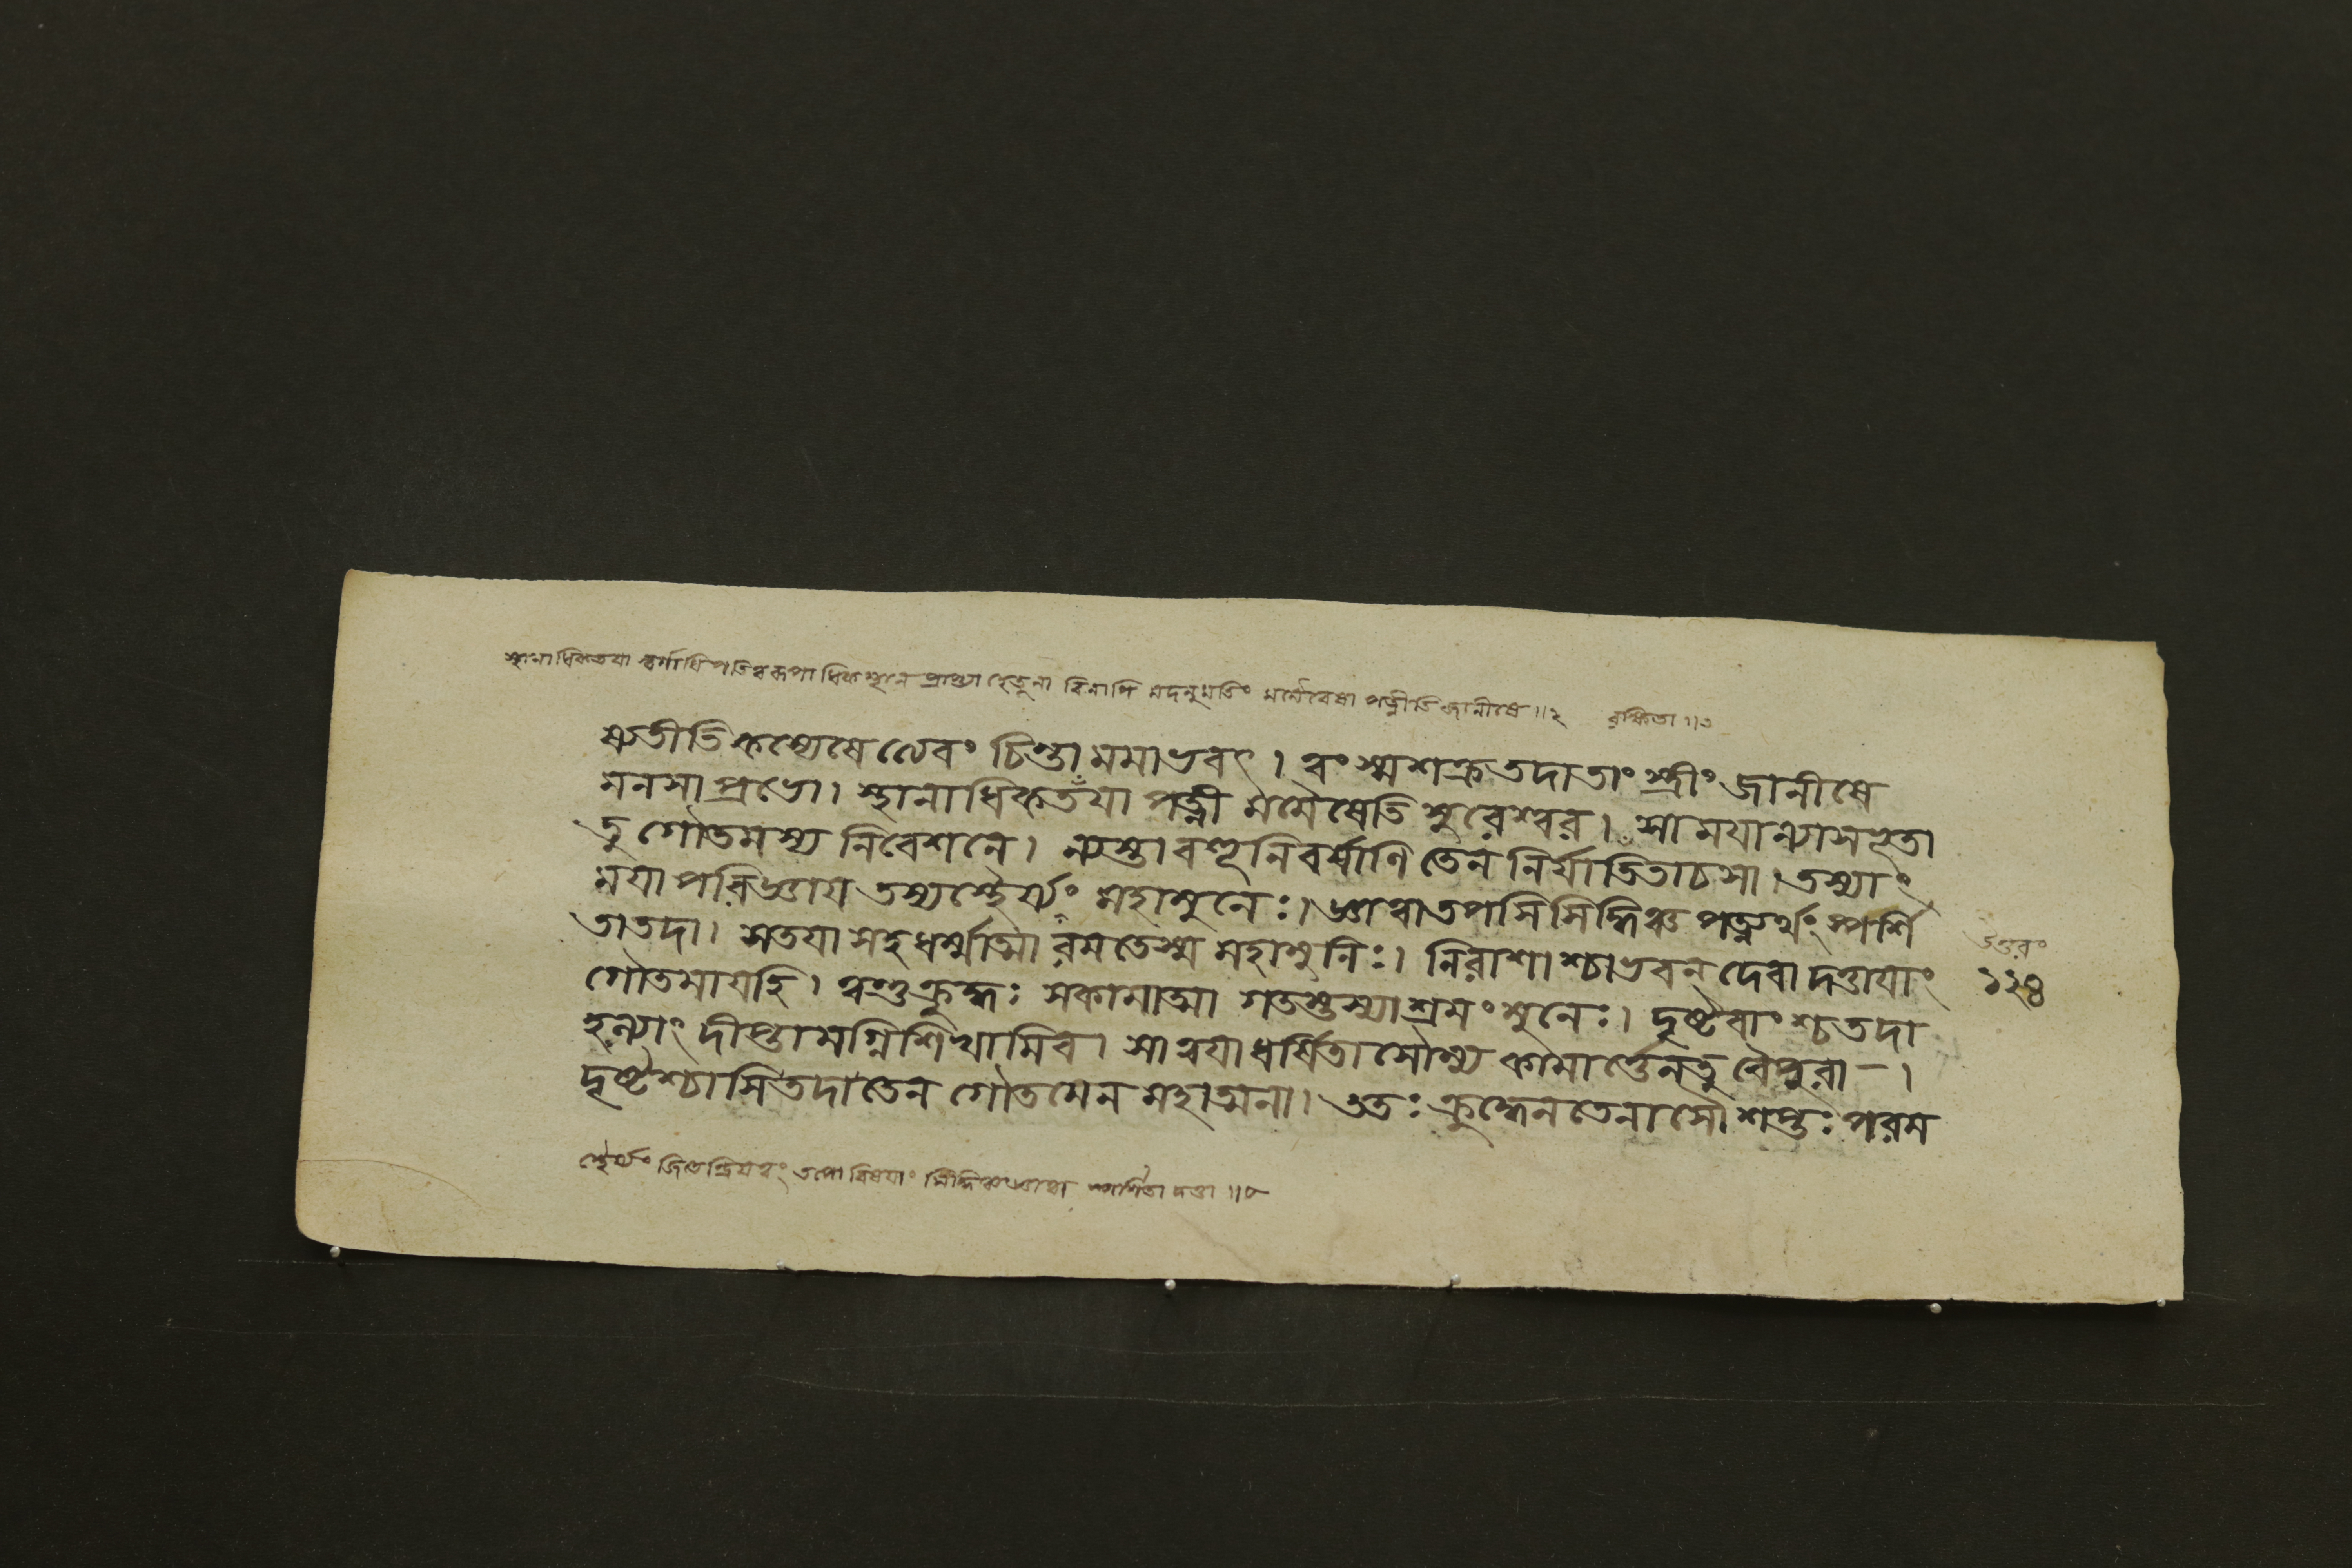 স্থানাধিকতয়া স্বর্গাধিপতিত্বরূপাধিকস্থানে প্রাপ্ত্যা হেতুনা বিনাপি মদনুমতিং মমৈবৈষা পত্নীতি জানীষে ॥২ রক্ষিতা ॥৩
ষ্যতীতি কস্যেষেত্যেবং চিন্তা মমাভবৎ । ত্বং স্ম শক্র তদা তাং স্ত্রীং জানীষে
মনসা প্রভো । স্থানাধিকতয়া পত্নী মমৈষেতি সুরেশ্বর । সা ময়া ন্যাসভূতা
তু গৌতমস্য নিবেশনে । ন্যস্তা বহূনি বর্ষাণি তেন নির্যাতিতা চ সা । তস্যাং
ময়া পরিজ্ঞায় তস্য স্থৈর্য্যং মহামুনেঃ । জ্ঞাত্বা তপসি সিদ্ধিঞ্চ পত্ন্যর্থং স্পর্শি
তা তদা । স তয়া সহ ধর্ম্মাত্মা রমতে স্ম মহামুনিঃ । নিরাশাশ্চাভবন্ দেবা দত্তায়াং
গৌতমায় হি । ত্বন্তু ক্রুদ্ধঃ সকামাত্মা গতস্তস্যাশ্রমং মুনেঃ । দৃষ্টবাংশ্চ তদা
হ ন্যাং দীপ্তামগ্নিশিখামিব । সা ত্বয়া ধর্ষিতা সৌম্য কামার্ত্তেন তু বৈ পুরা – ।
দৃষ্টশ্চাসি তদা তেন গৌতমেন মহাত্মনা । ততঃ ক্রুদ্ধেন তেনাসৌ শপ্তঃ পরম
উত্তরং
১২৪
স্থৈর্য্যং জিতেন্দ্রিয়ত্বং তপো বিষয়াং সিদ্ধিঞ্চ জ্ঞাত্বা স্পর্শিতা দত্তা ॥৫